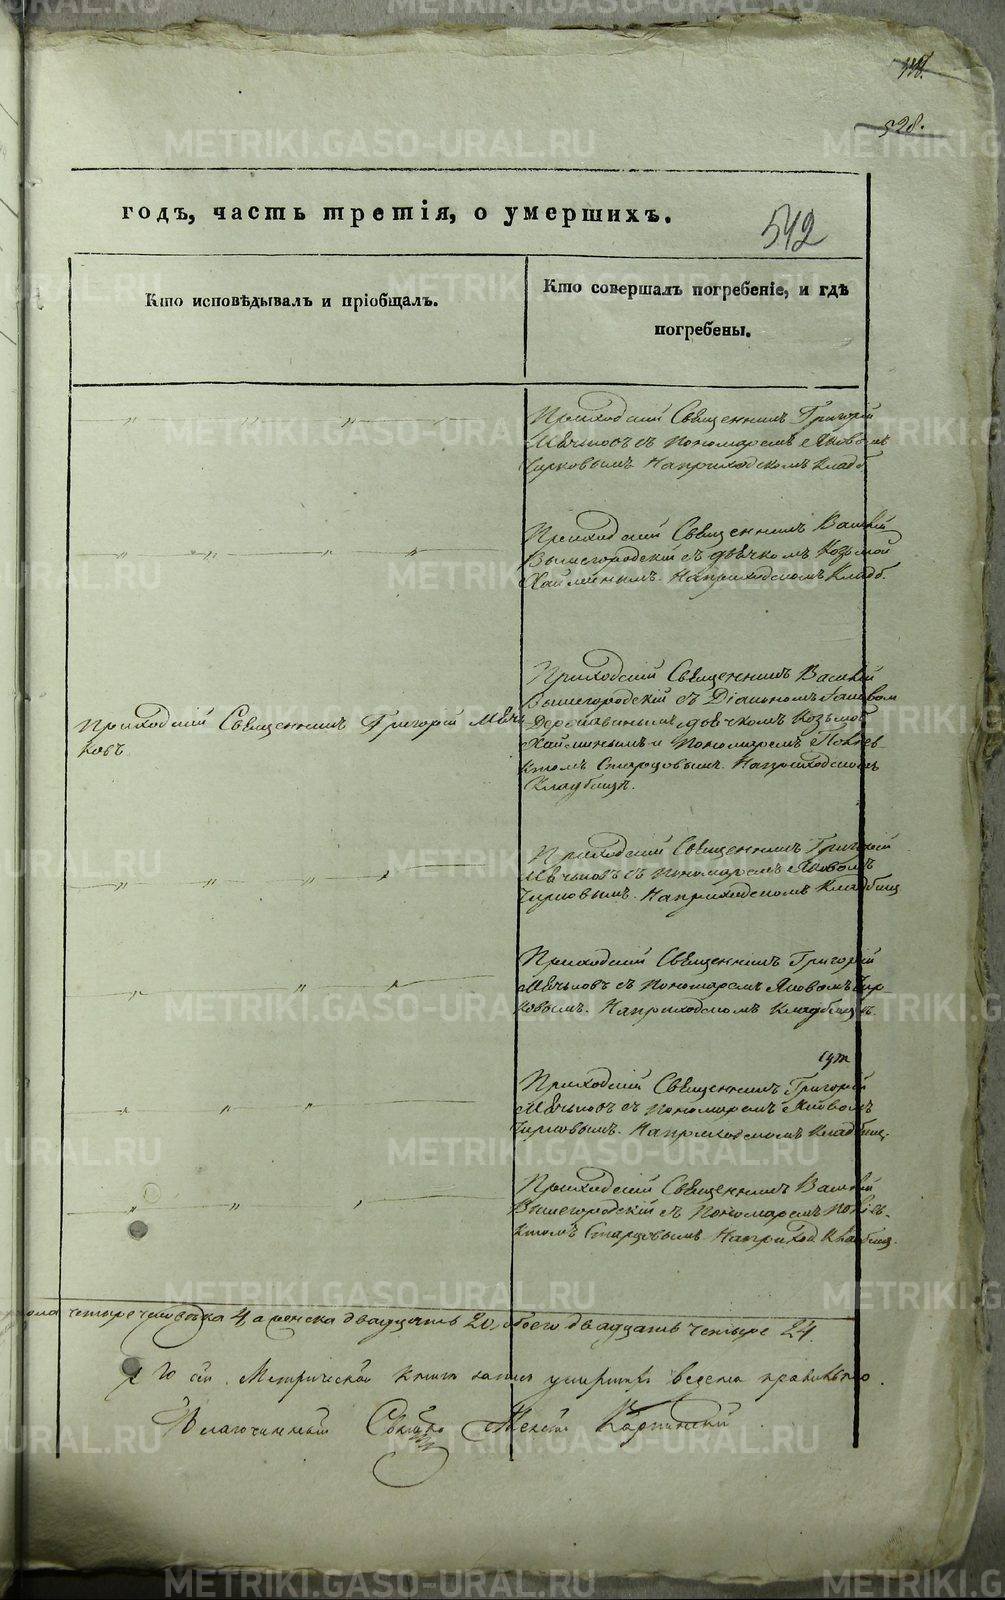 528.
годъ, часть третія, о умершихъ.
542
Кто исповѣдывалъ и пріобщалъ.
Кто совершалъ погребеніе, и гдѣ
погребены.
Приходскій Священникъ Григорій
Мѣчковъ съ Пономаремъ Яковомъ
Чирковымъ. На приходскомъ Кладб.
Приходскій Священникъ Василій
Вышегородскій съ дьячкомъ Козьмой
Хайминымъ. На приходскомъ Кладб.
Приходскій Священникъ Григорій Мѣч
ковъ
Приходскій Священникъ Василій
Вышегородскій съ Діакономъ
дьячкомъ Козьмой
Хайминымъ и Пономаремъ Поліев
ктомъ Старцовымъ. На приходскомъ
Кладбищѣ.
Приходскій Священникъ Григорій
Мѣчковъ съ Пономаремъ Яковомъ
Чирковымъ. На приходскомъ Кладбищ
Приходскій Священникъ Григорій
Мѣчковъ съ Пономаремъ Яковомъ Чир
ковымъ. На приходскомъ Кладбищѣ.
Приходскій Священникъ Григорій
Мѣчковъ съ Пономаремъ Яковомъ
Чирковымъ. На приходскомъ Кладбищ.
Приходскій Священникъ Василій
Вышегородскій съ Пономаремъ Поліев-
ктомъ Старцовымъ. На приход. Кладбищ.
пола четыре человѣка 4, а женска двадцать 20, обоего двадцать четыре 24.
По сей Метрической книгѣ запись умершихъ ведена правильно.
Благочинный Священ Алексій Карпинскій
METRIKI.GASO-URAL.RU